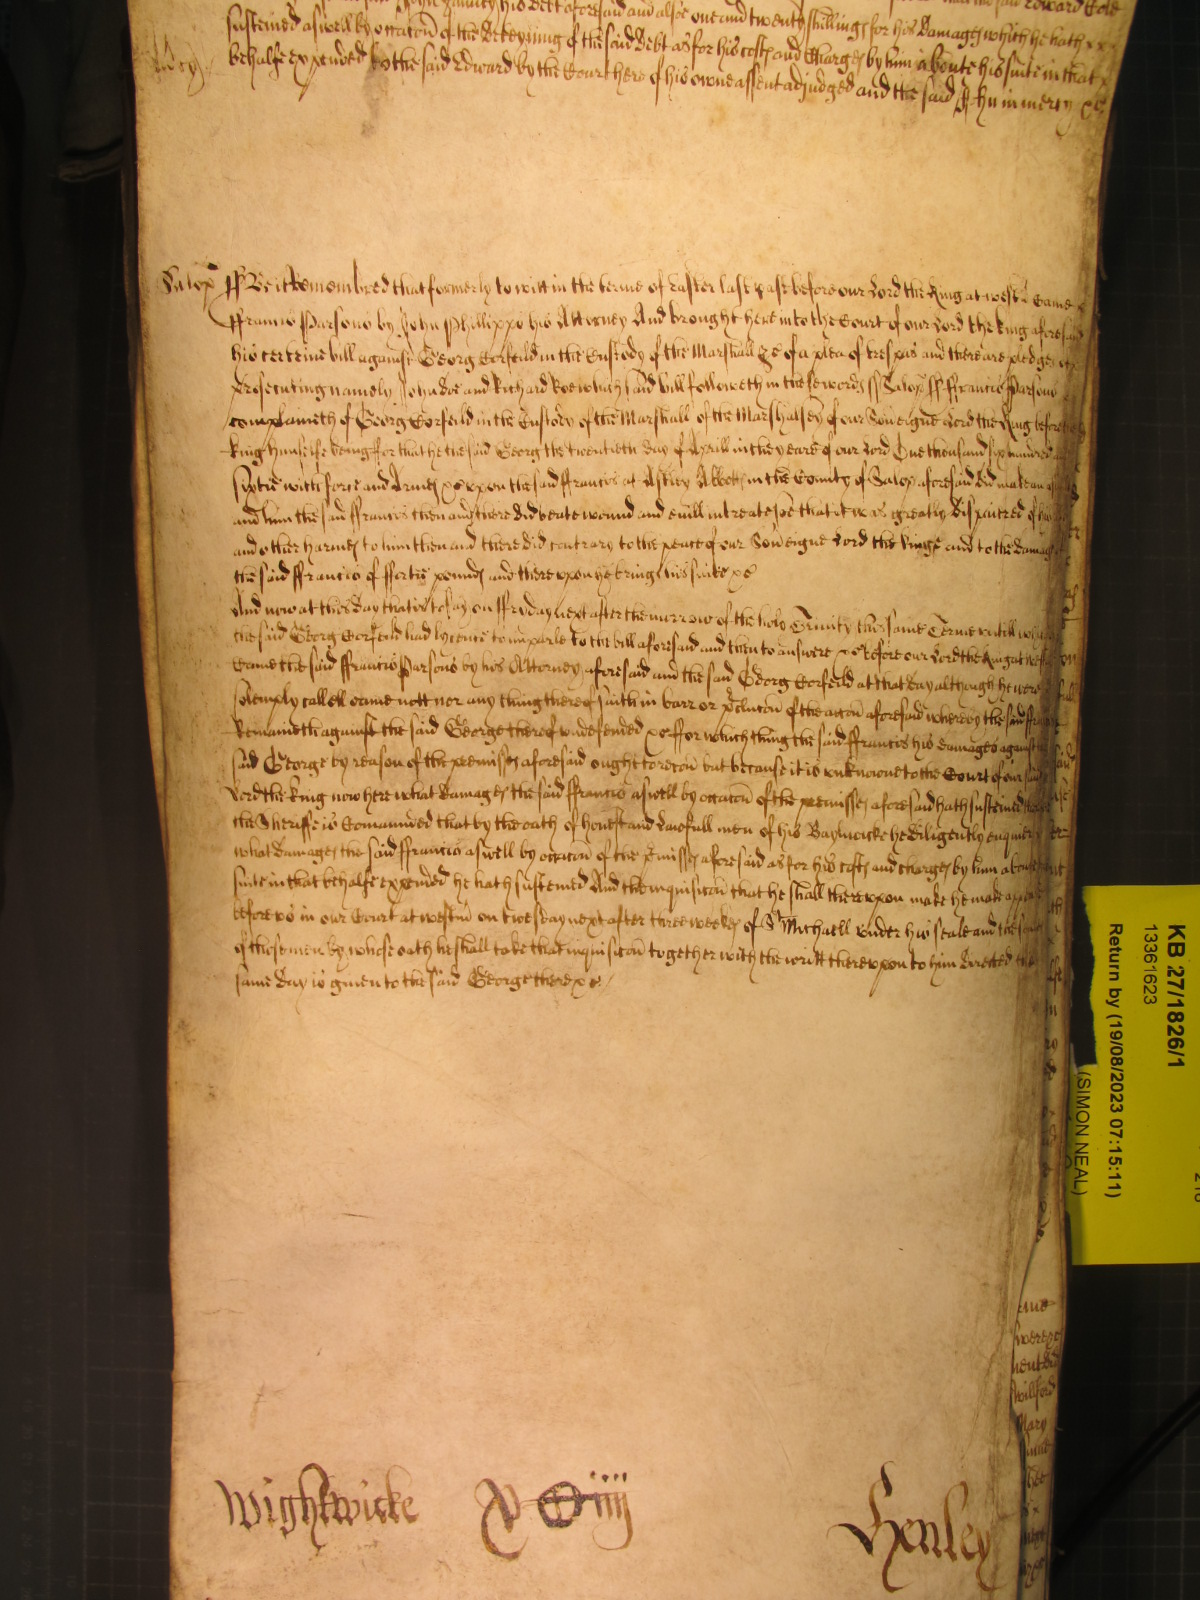 susteined aswell by occacon of the deteyning of the said Debt as for his costs and Charges by him aboute his suite in that
behalfe expended to the said Edward by the Court here of his owne assent adjudged and the said John in mercy &c
Salop ss Be it Remembred that formerly to witt in the terme of Easter last past before our Lord the King at westm Came
ffrancis Parsons by John Phillipps his Attorney And brought here into the Court of our Lord the King aforesaid
his certeine bill against Georg Corfeild in the Custody of the Marshall &c of a plea of trespas and there are pledges of
Prosecuting namely John doe and Richard Roe which said bill followeth in these words ss Salop ss ffrancis Parsons
complaineth of Georg Corfeild in the Custody of the Marshall of the Marshalsey of our Soveigne Lord the King before the
King himselfe being ffor that he the said Georg the twentieth day of Aprill in the yeare of our Lord One thousand six hundred and
sixtie with force and Armes &c uppon the said ffrancis at Astley Abbotts in the County of Salop aforesaid did make an
and him the said ffrancis then and there did beate wound and evill intreate soe that it was greatly dispaired of
and other harmes to him then and there did contrary to the peace of our Soveigne Lord the kinge and to the damage
the said ffrancis of ffortie pounds and thereuppon he brings his suite &c
And now at this day that is to say on ffryday next after the morrow of the holy Trinity this same Terme untill which
the said Georg Corfeild had lycence to imparle to the bill aforesaid and then to answere &c before our Lord the King at westm
Came the said ffrancis Parsons by his Attorney aforesaid and the said Georg Corfeild at that day although he were
solemply called came nott nor any thing thereof saith in barr or p'clucon of the accon aforesaid whereby the said
Remaineth against the said George thereof undefended &c ffor which thing the said ffrancis his damages against the
said George by reason of the premisses aforesaid ought to recou but because it is unknowne to the Court of our said
Lord the King now here what damages the said ffrancis aswell by occacon of the premisses aforesaid hath susteined
the Sheriffe is Comaunded that by the oath of honest and lawfull men of his Baylwicke he diligently enquire
what damages the said ffrancis aswell by occacon of the p'misses aforesaid as for his costs and charges by him aboute
suite in that behalfe expended he hath susteined And the inquisicon that he shall thereuppon make he make appeare
before us in our Court at westm on twesday next after three weekes of St Michaell under his seale and the seales
of those men by whose oath he shall take that inquisicon together with the writt thereuppon to him directed the
same day is given to the said George there &c
Wightwicke Henley
KB 27/1826/1
13361623
Return by (19/08/2023 07:15:11)
(SIMON NEAL)